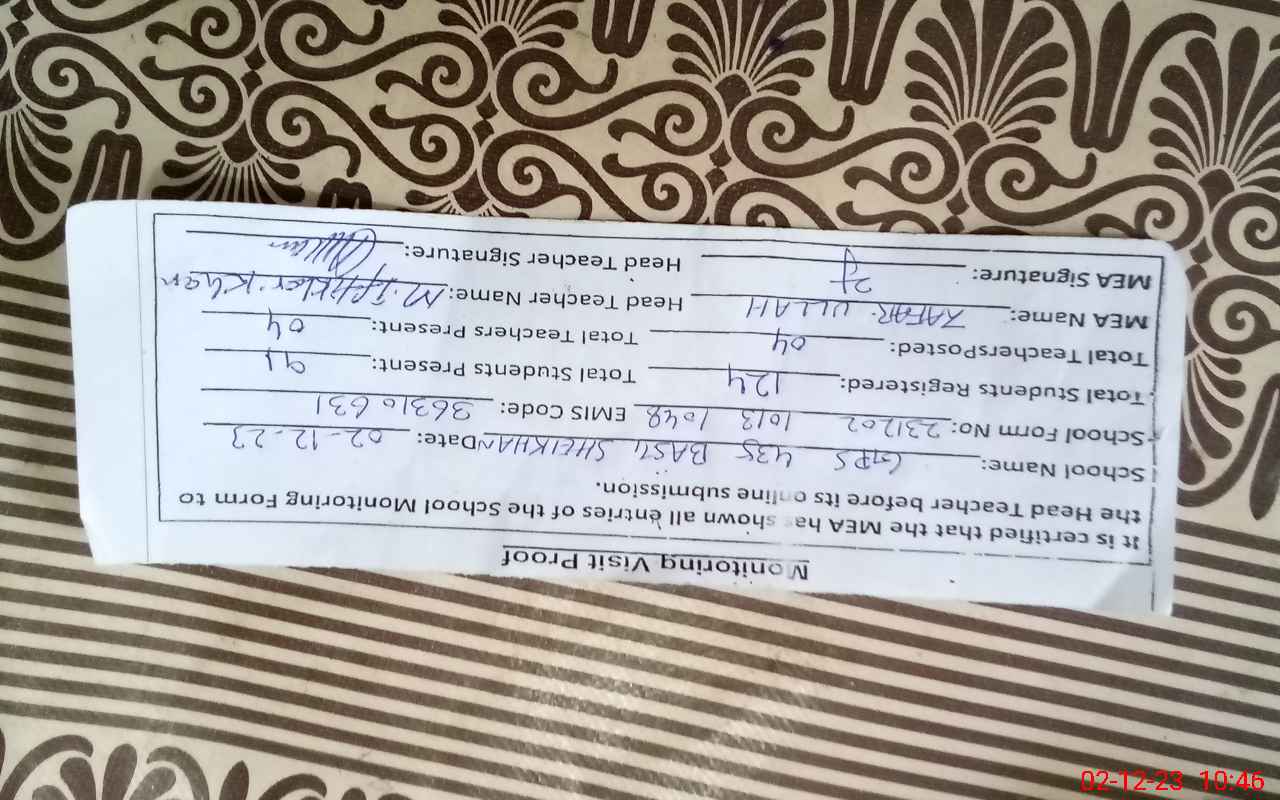 Monitoring Visit Proof
It is certified that the MEA has shown all entries of the School Monitoring Form to
the Head Teacher before its online submission.
School Name: GPS 435 BASTI SHEIKHAN Date: 02-12-23
School Form No: 231202 1013 1048 EMIS Code: 36310631
Total Students Registered: 124 Total Students Present: 91
Total TeachersPosted: 04 Total Teachers Present: 04
MEA Name: ZAFAR ULLAH Head Teacher Name: M. Iftikhar Khan
MEA Signature: Head Teacher Signature:
02-12-23 10:46